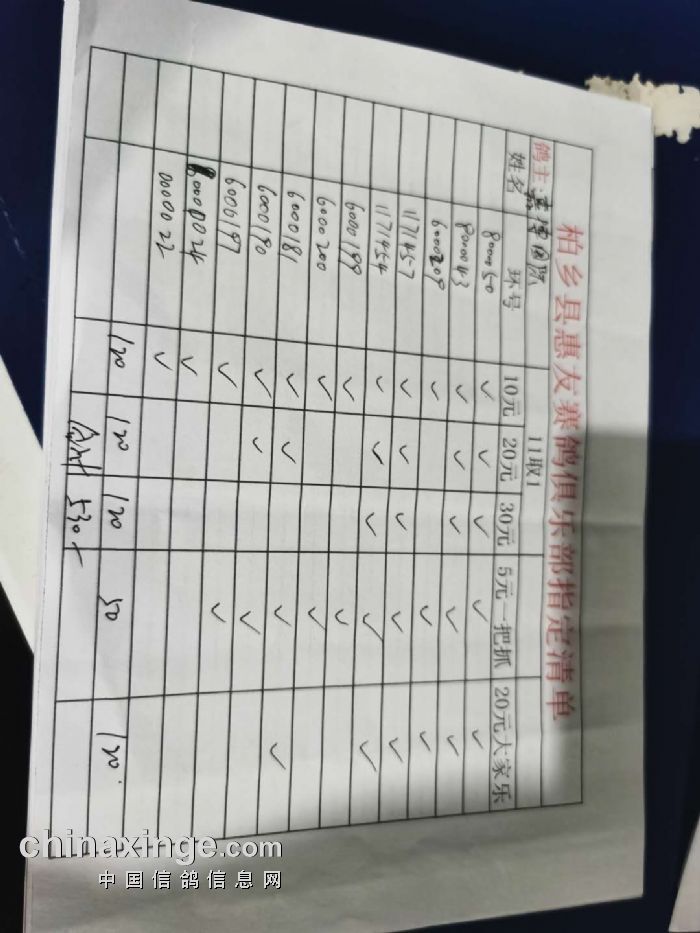 柏乡县惠友赛鸽俱乐部指定清单
鸽主: 团队 11取1
姓名 环号 10元 20元 30元 5元一把抓 20元大家乐
8000050 ✓ ✓ ✓ ✓ ✓
8000043 ✓ ✓ ✓ ✓ ✓
6000209 ✓ ✓ ✓
1171457 ✓ ✓ ✓ ✓ ✓
1171454 ✓ ✓ ✓ ✓ ✓
6000199 ✓ ✓
6000200 ✓ ✓
6000181 ✓ ✓ ✓ ✓
6000180 ✓ ✓ ✓
6000197 ✓ ✓
0000024 ✓
0000022 ✓
120 120 120 50 120
合计 530.-
chinaxinge.com
中国信鸽信息网